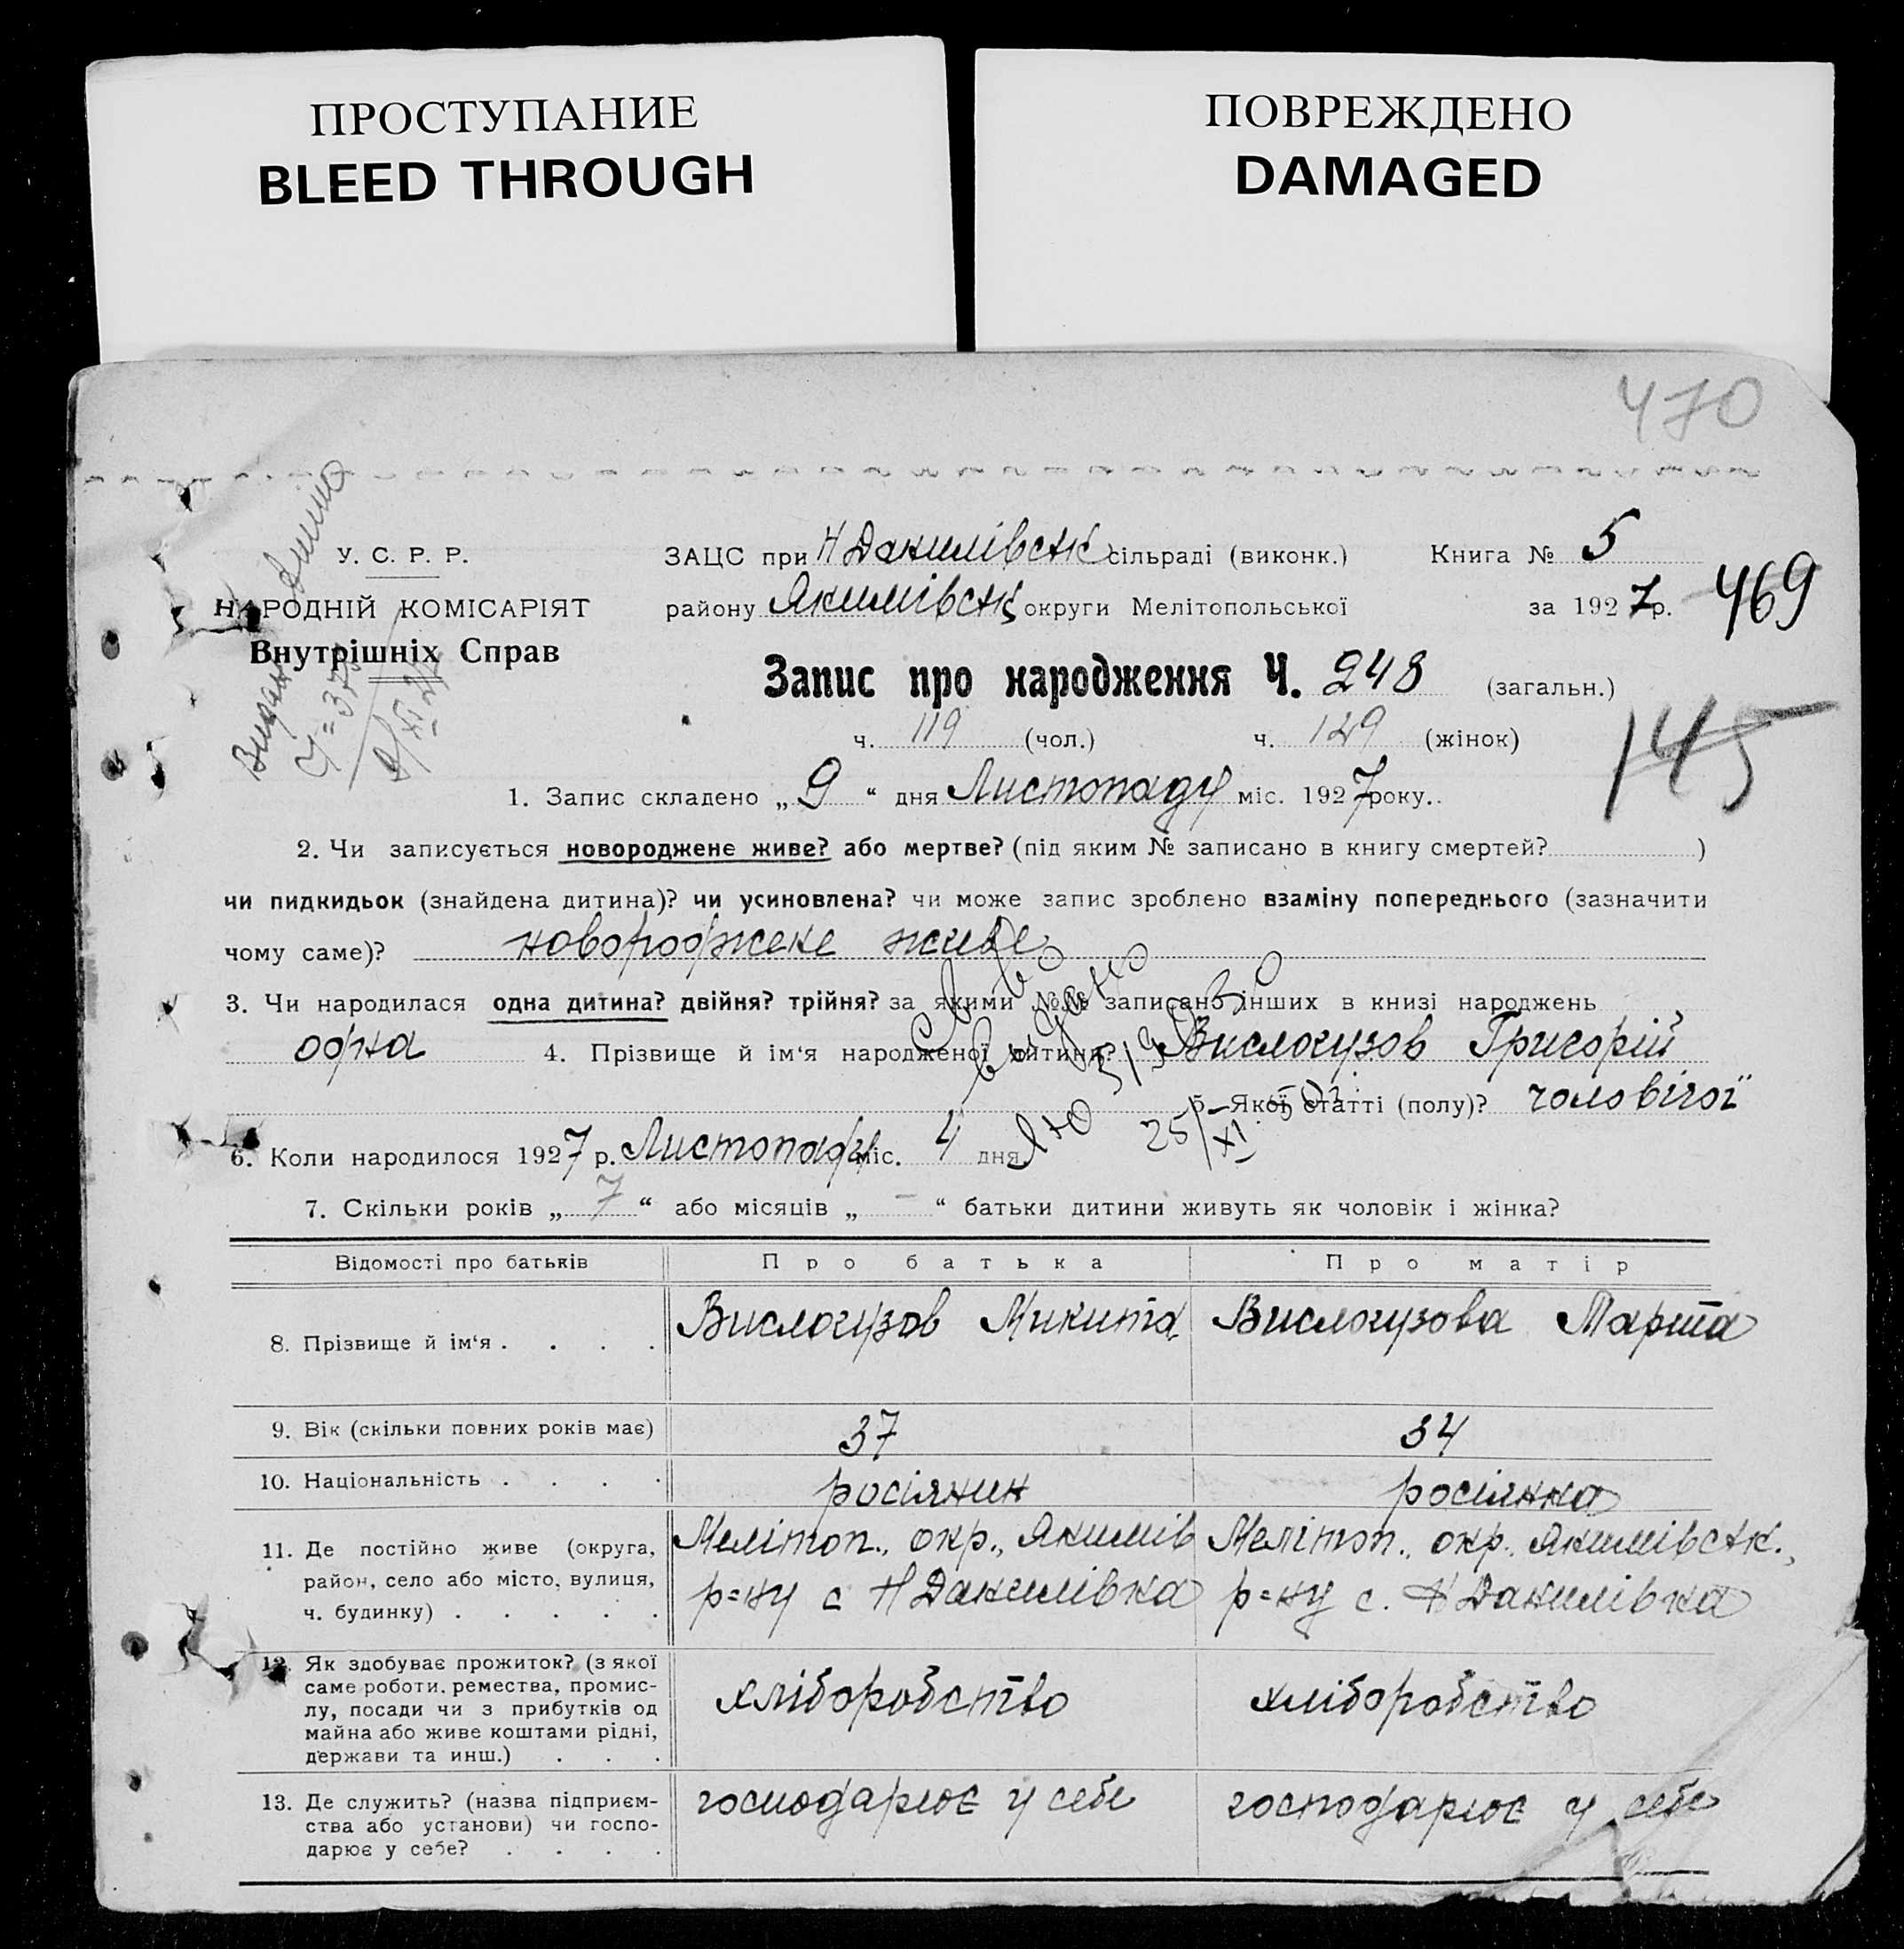 ПРОСТУПАНИЕ
BLEED THROUGH
ПОВРЕЖДЕНО
DAMAGED
470
У. С. Р. Р.
НАРОДНІЙ КОМІСАРІЯТ
Внутрішніх Справ
ЗАЦС при Н Данилівськ сільраді (виконк.) Книга № 5
району Якимівськ округи Мелітопольської за 1927 р. 469
Запис про народження Ч. 248 (загальн.)
ч. 119 (чол.) ч. 129 (жінок)
145
1. Запис складено „ 9 “ дня Листопаду міс. 1927 року.
2. Чи записується новороджене живе? або мертве? (під яким № записано в книгу смертей? )
чи пидкидьок (знайдена дитина)? чи усиновлена? чи може запис зроблено взаміну попереднього (зазначити
чому саме)? новороджене живе
3. Чи народилася одна дитина? двійня? трійня? за якими №№ записано інших в книзі народжень
одна 4. Прізвище й ім‘я народженої дитини? Вислогузов Григорій
5. Якої статті (полу)? чоловічої
6. Коли народилося 1927 р. Листопаду міс. 4 дня
25/XI
7. Скільки років „ 7 “ або місяців „ – “ батьки дитини живуть як чоловік і жінка?
Відомості про батьків Про батька Про матір
8. Прізвище й ім‘я . . . . Вислогузов Микита Вислогузова Марта
9. Вік (скільки повних років має) 37 34
10. Національність . . . . росіянин росіянка
11. Де постійно живе (округа, Мелітоп., окр., Якимів Мелітоп., окр. Якимівськ.,
район, село або місто, вулиця, р=ну с Н Данилівка р=ну с. Н Данилівка
ч. будинку) . . . . .
12. Як здобуває прожиток? (з якої
саме роботи, ремества, промис- хліборобство хліборобство
лу, посади чи з прибутків од
майна або живе коштами рідні,
держави та инш.) . . .
13. Де служить? (назва підприєм- господарює у себе господарює у себе
ства або установи) чи госпо-
дарює у себе? . . . .